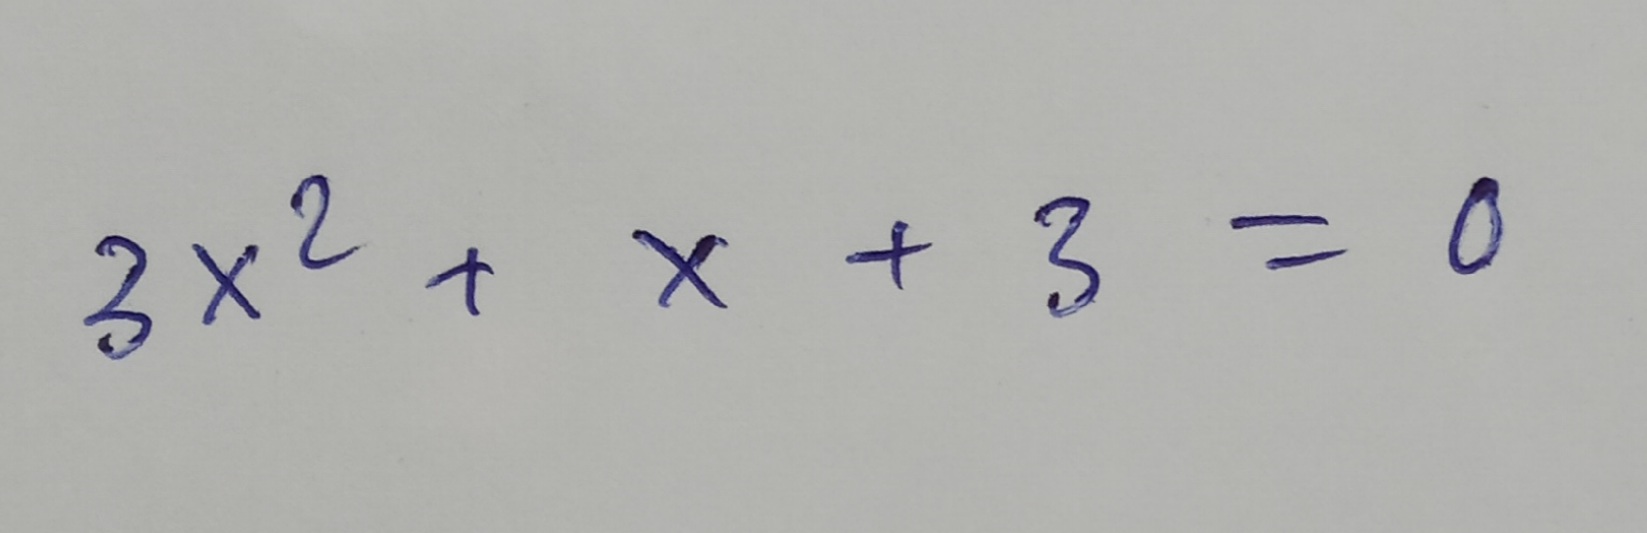 3x² + x + 3 = 0